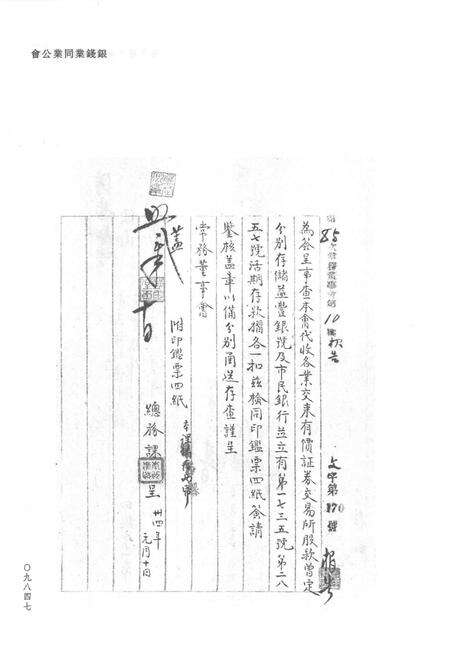 銀錢業同業公會
第85次常務董事會第10號报告
文字第170號
為簽呈事查本會代收各業交來有價証券交易所股款曾定
分別存儲益豐銀號及市民銀行並立有第一七三五號第二八
五七號活期存款摺各一扣茲檢同印鑑票四紙簽請
鑒核盖章以備分別函送存查謹呈
常務董事會
附印鑑票四紙
總務課
呈
卅四年
元月十日
盖
〇九八四七